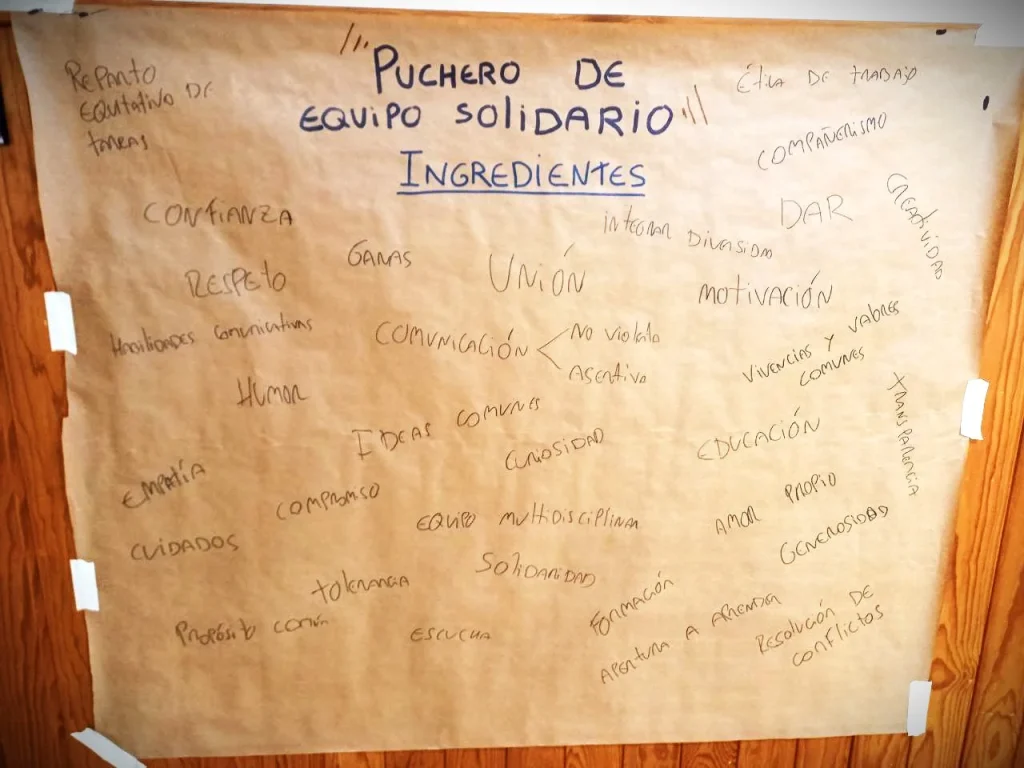 PUCHERO DE
EQUIPO SOLIDARIO
INGREDIENTES
REPARTO
EQUITATIVO DE
TAREAS
ÉTICA DE TRABAJO
COMPAÑERISMO
CREATIVIDAD
CONFIANZA
DAR
INTEGRAR DIVERSIDAD
GANAS
UNIÓN
RESPETO
MOTIVACIÓN
HABILIDADES COMUNICATIVAS
COMUNICACIÓN
NO VIOLENTA
ASERTIVA
VIVENCIAS Y VALORES
COMUNES
HUMOR
TRANSPARENCIA
IDEAS COMUNES
CURIOSIDAD
EDUCACIÓN
EMPATÍA
COMPROMISO
EQUIPO MULTIDISCIPLINAR
AMOR PROPIO
GENEROSIDAD
CUIDADOS
SOLIDARIDAD
TOLERANCIA
FORMACIÓN
PROPÓSITO COMÚN
ESCUCHA
APERTURA A APRENDER
RESOLUCIÓN DE
CONFLICTOS